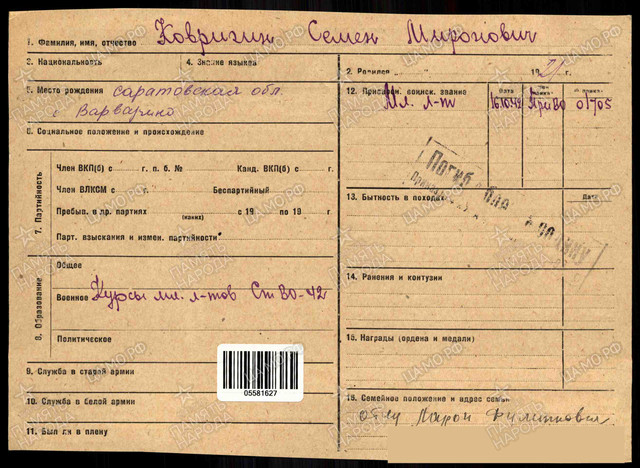 1. Фамилия, имя, отчество Ковригин Семен Миронович
3. Национальность
4. Знание языков
2. Родился 1921 г.
5. Место рождения Саратовская обл.
Варварино
6. Социальное положение и происхождение
7. Партийность
Член ВКП(б) с г. п. б. № Канд. ВКП(б) с г.
Член ВЛКСМ с г. Беспартийный
Пребыв. в др. партиях с 19 по 19 г.
(каких)
Парт. взыскания и измен. партийности
8. Образование
Общее
Военное Курсы мл. л-тов Ст ВО-42
Политическое
9. Служба в старой армии
10. Служба в белой армии
11. Был ли в плену
05581627
12. Присвоен. воинск. звание
Дата
Мл. л-т 16.10.42 ПриВО 01705
Погиб
13. Бытность в походах
Дата
14. Ранения и контузии
15. Награды (ордена и медали)
16. Семейное положение и адрес семьи
отец Мирон Филиппович
ПАМЯТЬ НАРОДА
ЦАМО.РФ